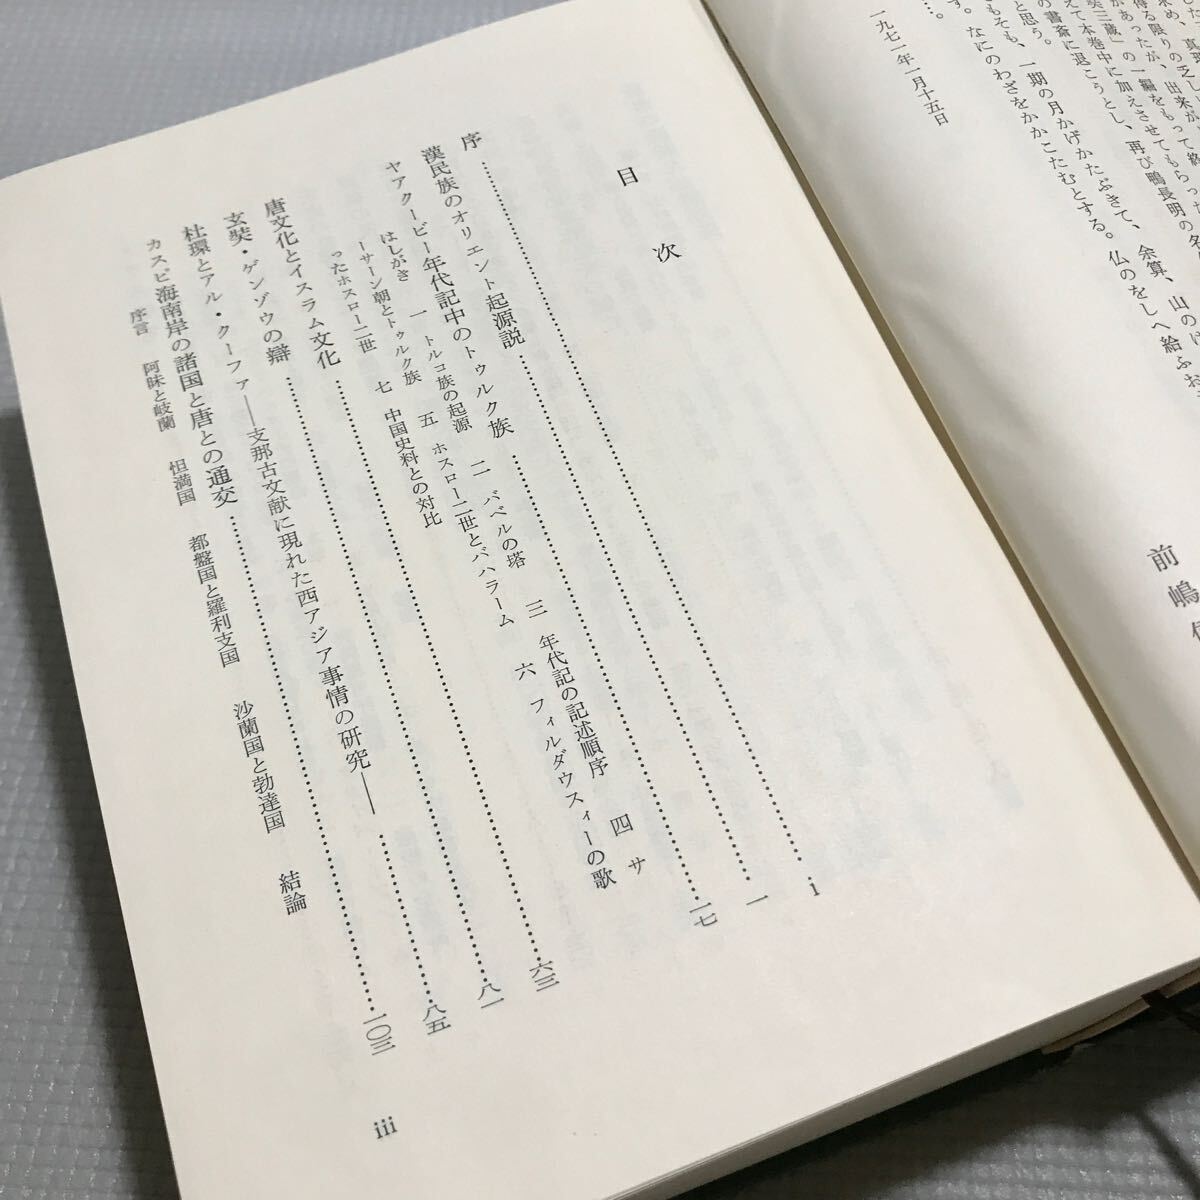 した、真理
求め、出来が
得る限りの乏し
があったが、
奘三蔵」の一編をもって終
えて本巻中に加えさせてもらった
の書斎に退こうとし、再び鴨長明の名
と思う。
もそも、一期の月かげかたぶきて、余算、山のけ
す。なにのわざをかかこたむとする。仏のをしへ給ふお
…。
一九七一年一月十五日
前嶋信
目次
序……1
漢民族のオリエント起源説……一
ヤアクービー年代記中のトゥルク族……一七
はしがき 一 トルコ族の起源 二 バベルの塔 三 年代記の記述順序 四 サ
ーサーン朝とトゥルク族 五 ホスロー二世とバハラーム 六 フィルダウスィーの歌
ったホスロー二世 七 中国史料との対比
唐文化とイスラム文化……六三
玄奘・ゲンゾウの辯……八一
杜環とアル・クーファ――支那古文献に現れた西アジア事情の研究――……八五
カスピ海南岸の諸国と唐との通交……一〇三
序言 阿昧と岐蘭 怛満国 都盤国と羅利支国 沙蘭国と勃達国 結論
iii